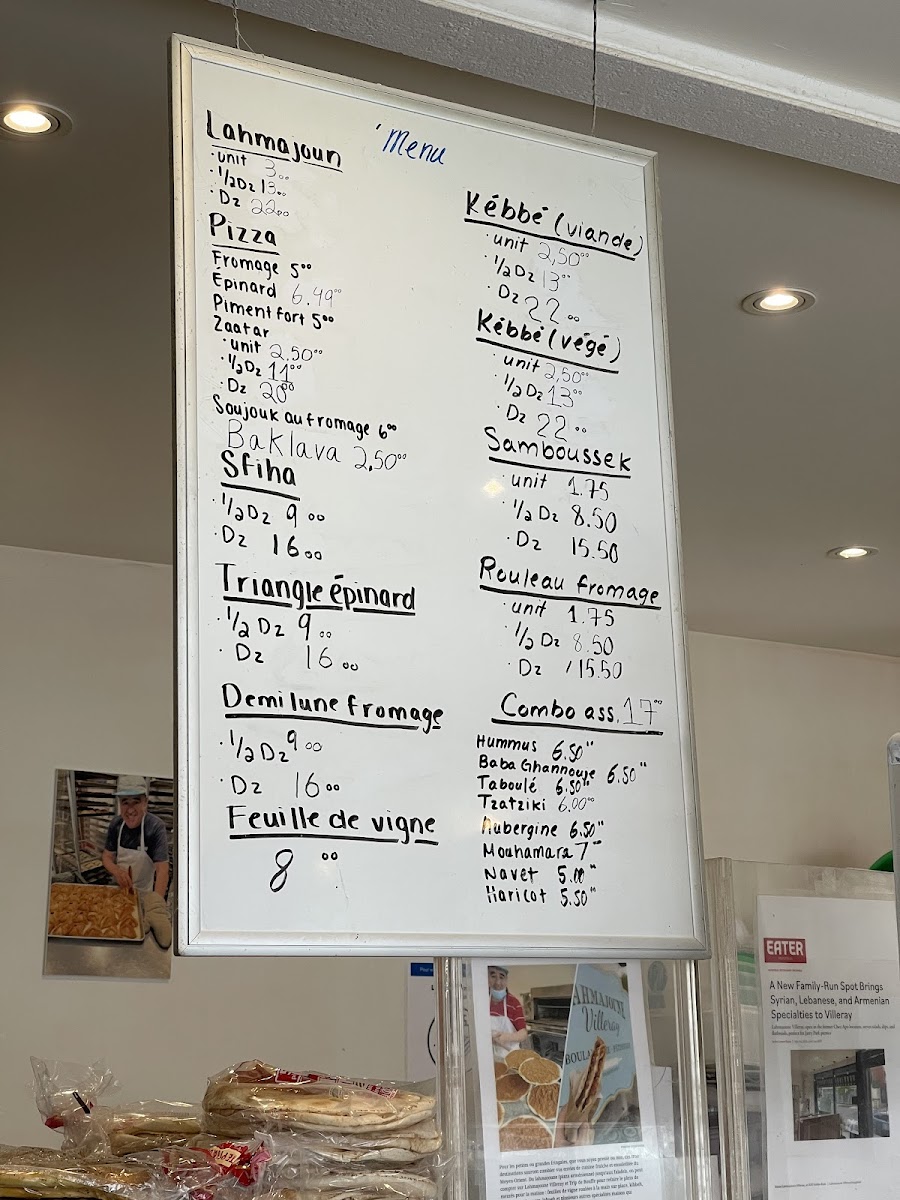 Menu
Lahmajoun
· unit 3.00
· 1/2 Dz 13.00
· Dz 22.00
Pizza
Fromage 5°°
Épinard 6.49°°
Piment fort 5°°
Zaatar
· unit 2.50°°
· 1/2 Dz 11°°
· Dz 20°°
Soujouk au fromage 6°°
Baklava 2,50°°
Sfiha
· 1/2 Dz 9 00
· Dz 16 00
Triangle épinard
· 1/2 Dz 9 00
· Dz 16 00
Demi lune fromage
· 1/2 Dz 9 00
· Dz 16 00
Feuille de vigne
8 °°
Kébbé (viande)
· unit 2,50°°
· 1/2 Dz 13°°
· Dz 22 00
Kébbé (végé)
· unit 2,50°°
· 1/2 Dz 13°°
· Dz 22 00
Samboussek
· unit 1.75
· 1/2 Dz 8.50
· Dz 15.50
Rouleau fromage
· unit 1.75
· 1/2 Dz 8.50
· Dz 15.50
Combo ass. 17°°
Hummus 6.50"
Baba Ghannouje 6.50"
Taboulé 6.50"
Tzatziki 6.00°°
Aubergine 6.50"
Mouhamara 7"
Navet 5.00"
Haricot 5.50"
EATER
A New Family-Run Spot Brings
Syrian, Lebanese, and Armenian
Specialties to Villeray
AHMAJOUNE
Villeray